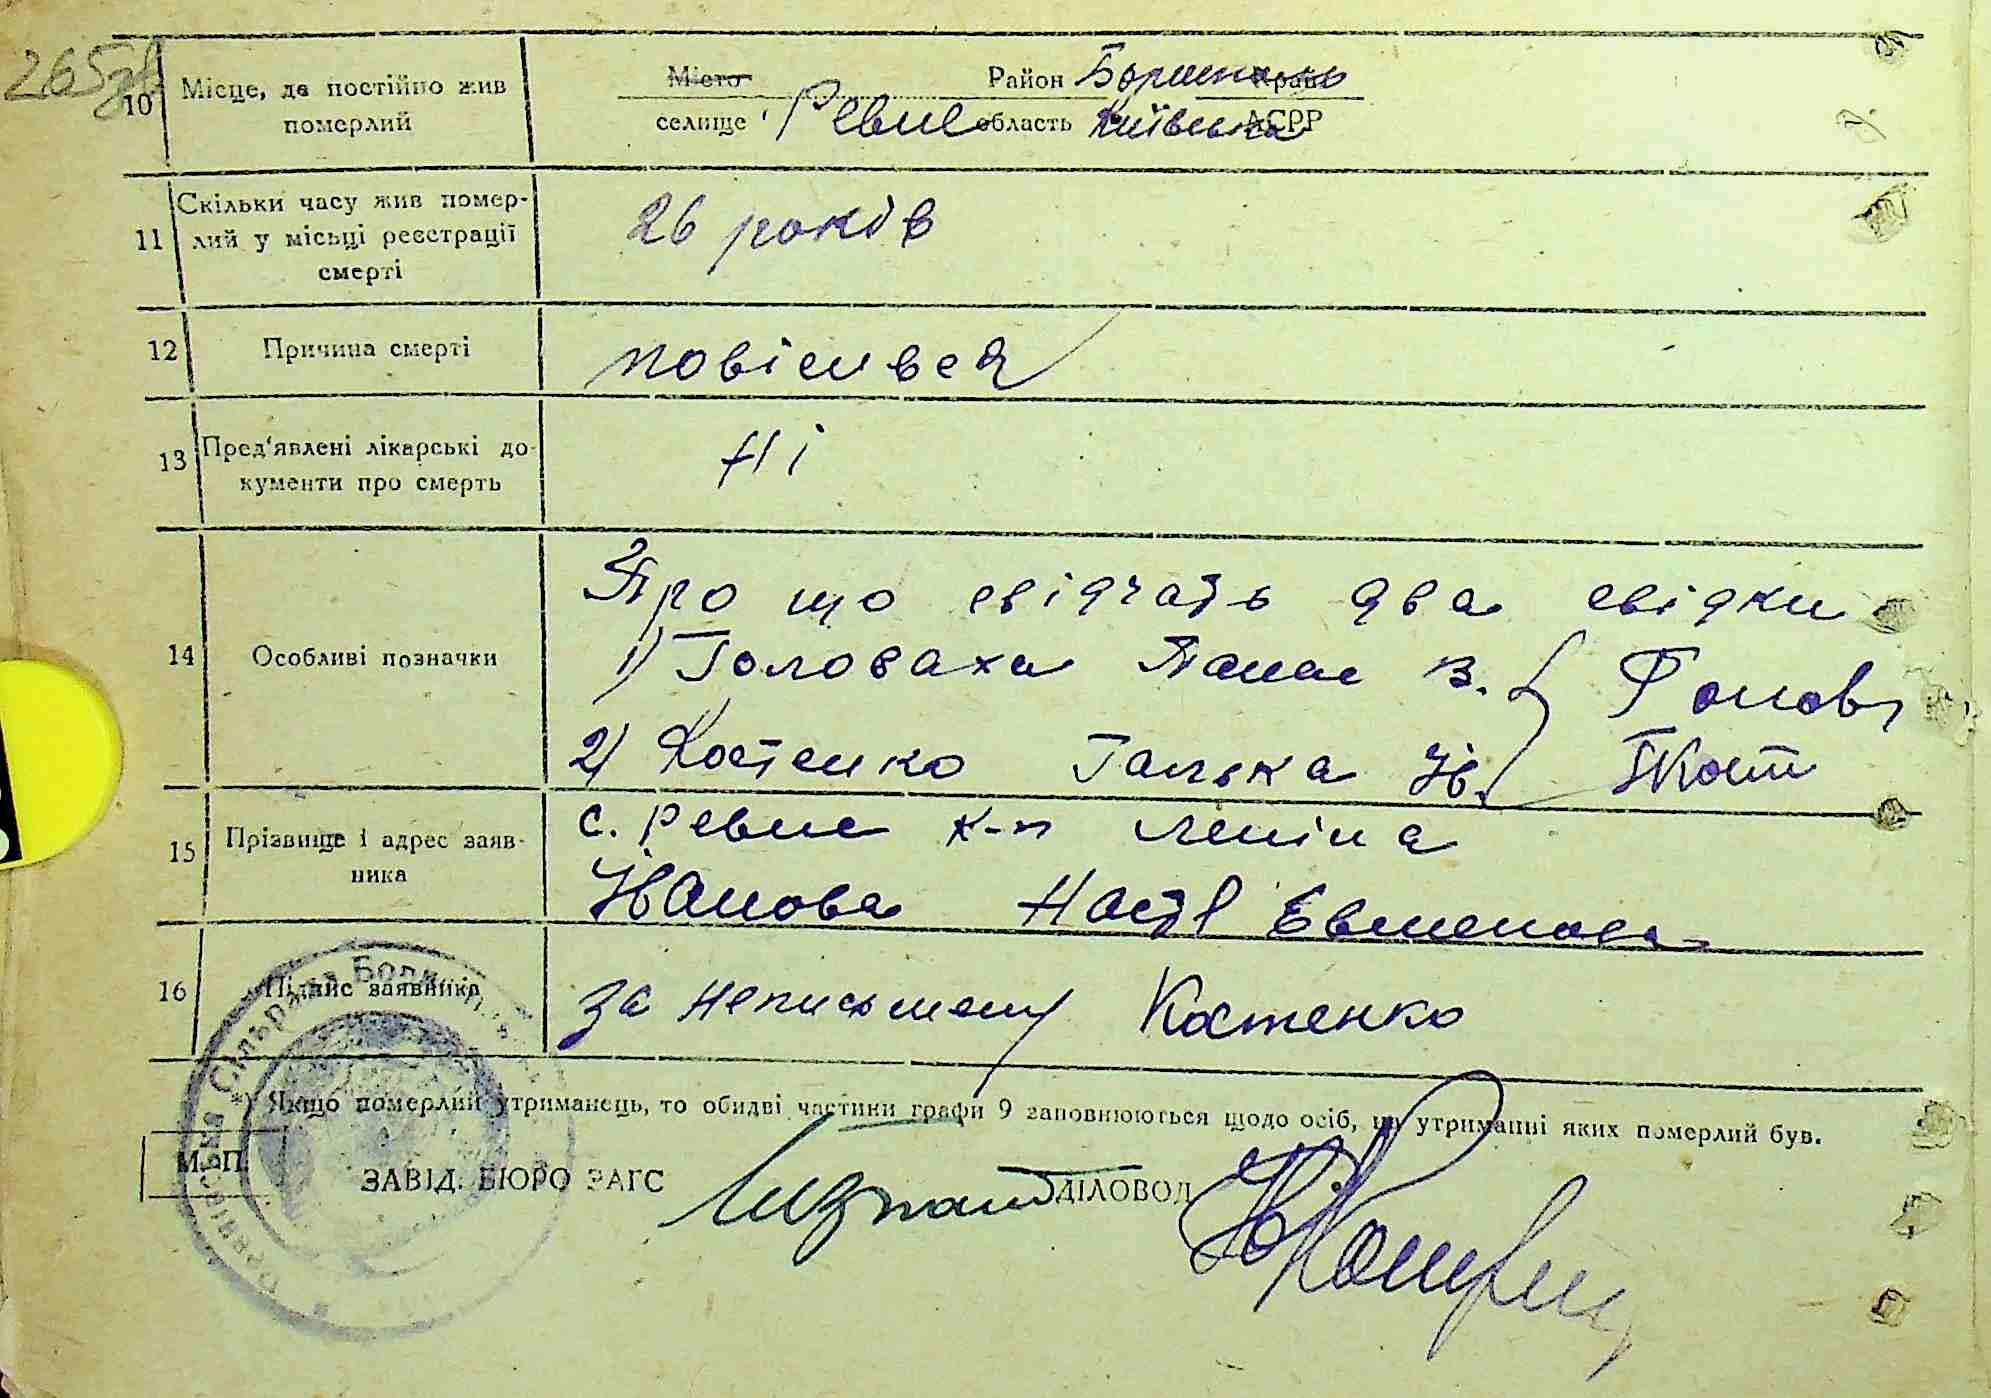 265зв.
10 Місце, де постійно жив померлий
Місто Район Борисполь Край
селище Ревне область Київська АСРР
11 Скільки часу жив помер-
лий у місьці реєстрації
смерті
26 років
12 Причина смерті
повісився
13 Пред'явлені лікарські до-
кументи про смерть
Ні
14 Особливі позначки
Про що свідчать два свідки
1) Головаха Панас В.
2) Костенко Галька Ів.
15 Прізвище і адрес заяв-
ника
с. Ревне к-п Леніна
Іванова Настя Евменовa
16 Підпис заявника
за неписьмену Костенко
*) Якщо померлий утриманець, то обидві частини графи 9 заповнюються щодо осіб, на утриманні яких померлий був.
М. П.
ЗАВІД. БЮРО ЗАГС ДІЛОВОД
Сільрада